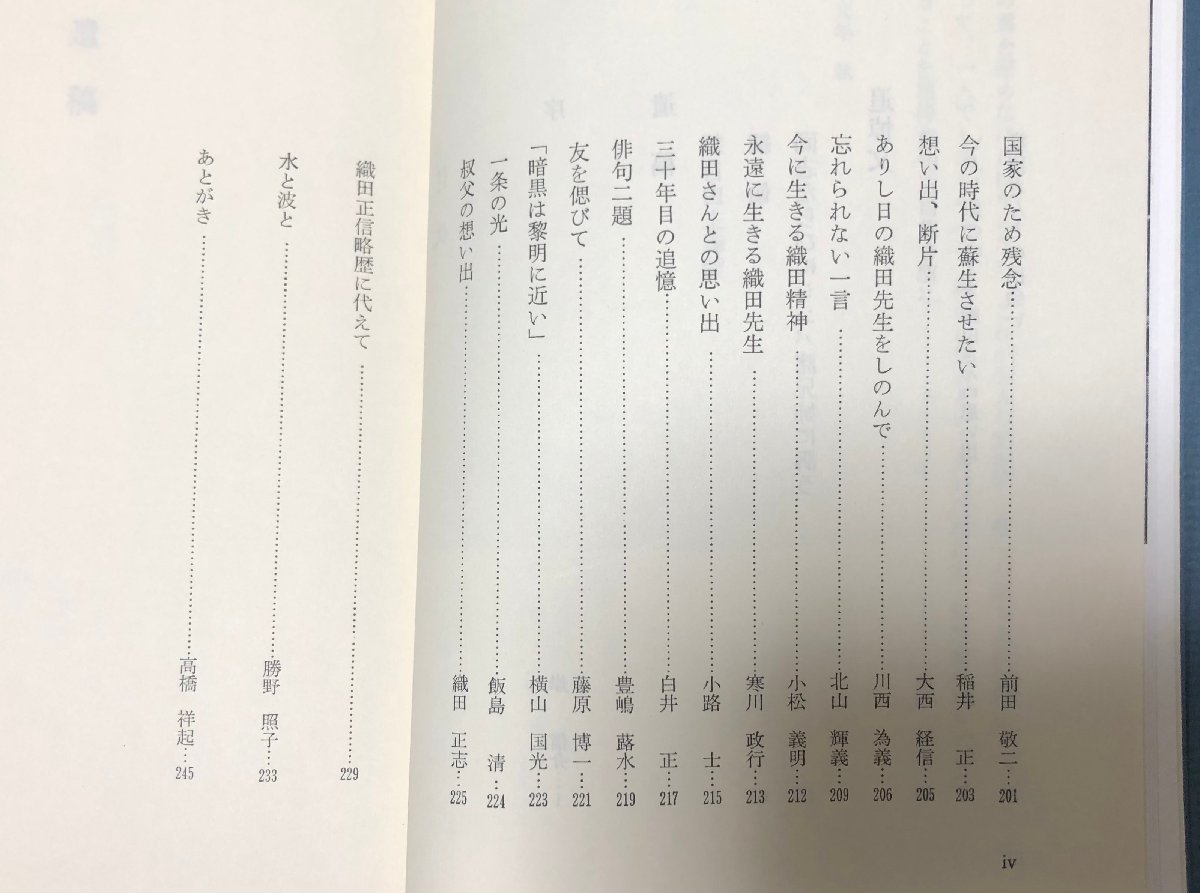 国家のため残念……前田 敬二…201
今の時代に蘇生させたい……稲井 正…203
想い出、断片……大西 経信…205
ありし日の織田先生をしのんで……川西 為義…206
忘れられない一言……北山 輝義…209
今に生きる織田精神……小松 義明…212
永遠に生きる織田先生……寒川 政行…213
織田さんとの思い出……小路 士…215
三十年目の追憶……白井 正…217
俳句二題……豊嶋 蕗水…219
友を偲びて……藤原 博一…221
「暗黒は黎明に近い」……横山 国光…223
一条の光……飯島 清…224
叔父の想い出……織田 正志…225
iv
織田正信略歴に代えて……229
水と波と……勝野 照子…233
あとがき……高橋 祥起…245